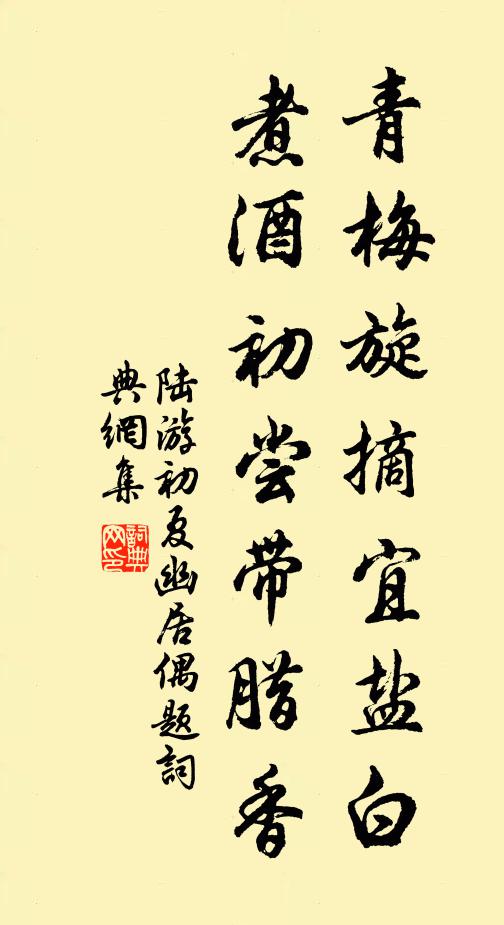 青梅旋摘宜盐白
煮酒初尝带腊香
陆游初夏幽居偶题词
典網集
詞典
网印